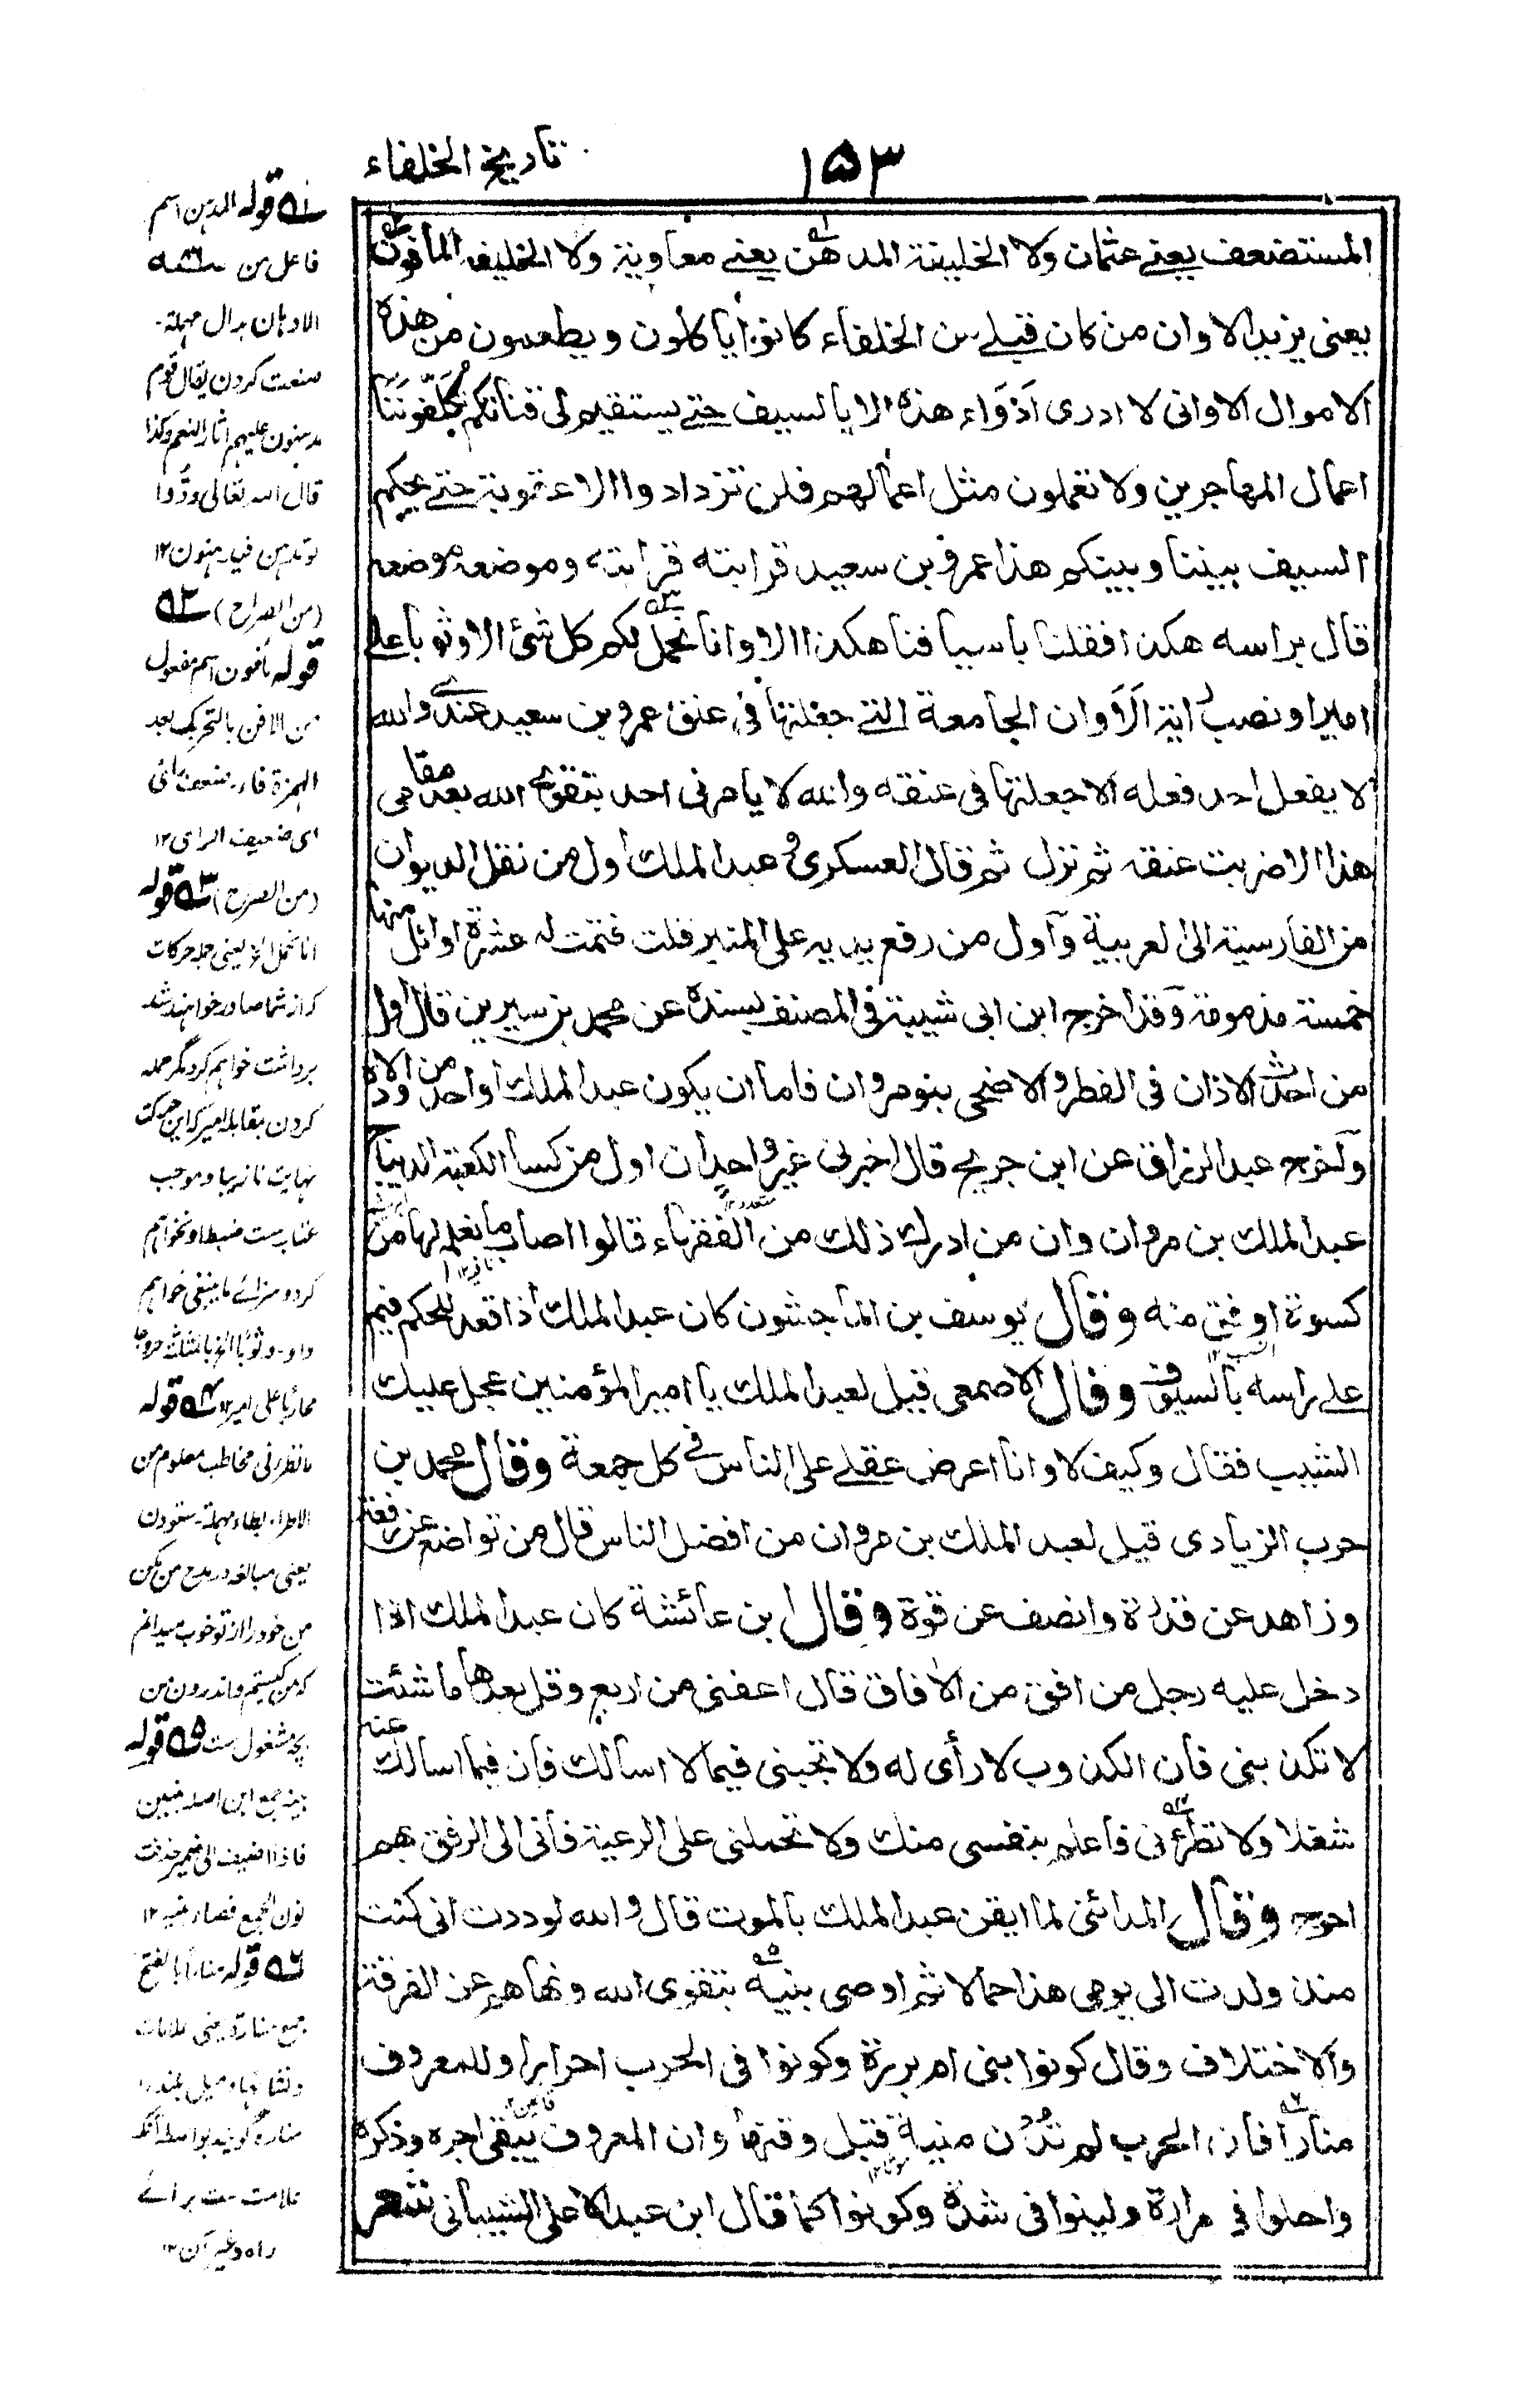 ١٥٣
تاريخ الخلفاء
المستضعف يعنے عثمان ولا الخليفة المداهن يعنے معاوية ولا الخليفة المأفون
يعنى يزيد الا وان من كان قبلے من الخلفاء كانوا يأكلون ويطعمون من هذه
الاموال الا وانى لا ادرى اَدْوَاء هذه الا بالسيف حتے يستقيم لى قناتكم تُكَلِّفُونَنَا
اعمال المهاجرين ولا تعملون مثل اعمالهم فلن تزدادوا الا عقوبة حتے يحكم
السيف بيننا وبينكم هذا عمرو بن سعيد قرابته قرابته وموضعه موضعه
قال براسه هكذا فقلنا باسيافنا هكذا الا وانا نحمل لكم كل شئ الا وثوبا على
امير او نصب راية الا وان الجامعة التے جعلتها فى عنق عمرو بن سعيد عندى والله
لا يفعل احد فعله الا جعلتها فى عنقه والله لا يامرنى احد بتقوى الله بعد مقامى
هذا الا ضربت عنقه ثم نزل ثم قال العسكرى وعبد الملك اول من نقل الديوان
من الفارسية الى العربية وأول من رفع يديه على المنبر قلت فتمت له عشرة اوائل منها
خمسة مذمومة وقد اخرج ابن ابى شيبة فى المصنف بسنده عن محمد بن سيرين قال اول
من احدث الاذان فى الفطر والاضحى بنو مروان فاما ان يكون عبد الملك او احدا من اولاده
وآخرج عبد الرزاق عن ابن جريج قال اخبرنى غير واحد ان اول من كسا الكعبة الديباج
عبد الملك بن مروان وان من ادرك ذلك من الفقهاء قالوا اصاب ما نعلم لها من
كسوة اوفق منه وقال يوسف بن الماجشون كان عبد الملك اذا قعد للحكم قيم
على راسه بالسيوف وقال الاصمعى قيل لعبد الملك يا امير المؤمنين عجل عليك
الشيب فقال وكيف لا وانا اعرض عقلے على الناس فى كل جمعة وقال محمد بن
حرب الزيادى قيل لعبد الملك بن مروان من افضل الناس قال من تواضع عن رفعة
وزاهد عن قدرة وانصف عن قوة وقال ابن عائشة كان عبد الملك اذا
دخل عليه رجل من افق من الأفاق قال اعفنى من اربع وقل بعدها ما شئت
لا تكذبنى فان الكذوب لا رأى له ولا تجبنى فيما لا اسالك فان فيما اسالك عنه
شغلا ولا تطرنى فاعلم بنفسى منك ولا تحملنى على الرعية فانى الى الرفق بهم
احوج وقال المدائنى لما ايقن عبد الملك بالموت قال والله لوددت انى كنت
منذ ولدت الى يومى هذا حمالا ثم اوصى بنيه بتقوى الله ونهاهم عن الفرقة
والاختلاف وقال كونوا بنى ام بررة وكونوا فى الحرب احرارا وللمعروف
منارا فان الحرب لم تدن منية قبل وقتها وان المعروف يبقى اجره وذكره
واحلوا فى مرارة ولينوا فى شدة وكونوا كما قال ابن عبد الاعلى الشيبانى شعر
قوله المدهن اسم
فاعل من
الادهان بدال مهملة
صنعت كردن يقال قوم
مدهنون عليهم اثار النعم وكذا
قال الله تعالى ودّوا
لو تدهن فيدهنون ١٢
(من الصراح)
قوله مأفون اسم مفعول
من الافن بالتحريك بعد
الهمزة فاء
اى ضعيف الراى ١٢
(من الصراح) قوله
انا نحمل الخ يعنى جمله حركات
كه از شما صادر خواهند شد
برداشت خواهم كرد مگر حمله
كردن بمقابله امير كه اين حركت
نهايت نازيبا وموجب
كرد وسزائے ما ينبغى خواهم
محاربا على امير قوله
لا تطرنى مخاطب معلوم من
الاطراء بطاء مهملة ستودن
يعنى مبالغه در مدح من مكن
من خود را از تو خوب ميدانم
كه من كيستم واندرون من
بچه مشغول ست قوله
بنيه جمع ابن اصله بنين
فاذا اضيف الى ضمير حذفت
نون الجمع فصار بنيه ١٢
قوله منارا بالفتح
جمع منارة بمعنى علامات
مناره گويند بواسطه آنكه
علامت ست برائے
راه وغير آن ١٢